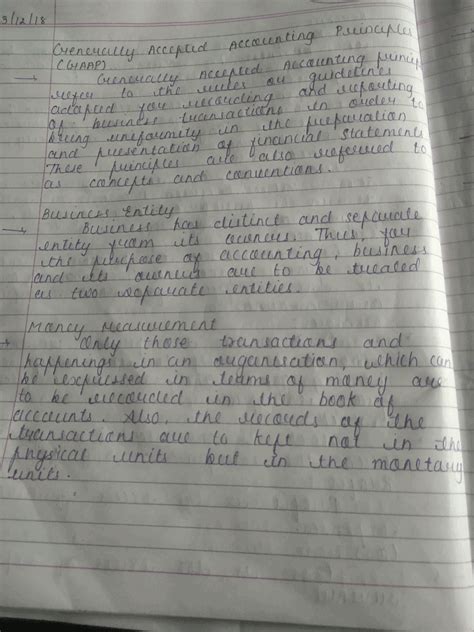 3/12/18
Generally Accepted Accounting Principles
(GAAP)
→ Generally Accepted Accounting princip
refer to the rules or guidelines
adapted for recording and reporting
of business transactions in order to
bring uniformity in the preparation
and presentation of financial statements
These principles are also referred to
as concepts and conventions.
Business Entity
→ Business has distinct and separate
entity from its owners. Thus, for
the purpose of accounting, business
and its owners are to be treated
as two separate entities.
Money Measurement
→ Only those transactions and
happenings in an organisation, which can
be expressed in terms of money are
to be recorded in the book of
accounts. Also, the records of the
transactions are to kept not in the
physical units but in the monetary
units.